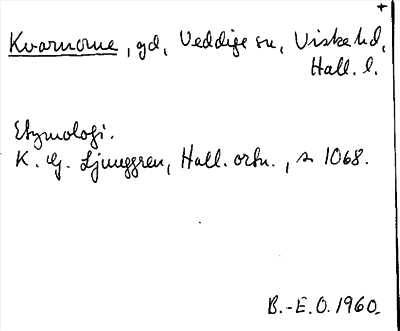 +
Kvarnorna, gd, Veddige sn, Viske hd,
Hall. l.
Etymologi.
K. G. Ljunggren, Hall. ortn., s 1068.
B.-E.O. 1960.